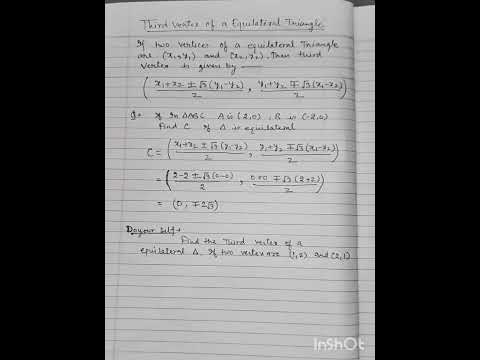 Third Vertex of a Equilateral Triangle
If two vertices of a equilateral Triangle
are (x₁, y₁) and (x₂, y₂). Then third
vertex is given by —
( x₁+x₂ ± √3 (y₁-y₂) / 2 , y₁+y₂ ∓ √3 (x₁-x₂) / 2 )
Q→ If In ΔABC A is (2,0), B is (-2,0)
Find C if Δ is equilateral
C = ( x₁+x₂ ± √3 (y₁-y₂) / 2 , y₁+y₂ ∓ √3 (x₁-x₂) / 2 )
= ( 2-2 ± √3 (0-0) / 2 , 0+0 ∓ √3 (2+2) / 2 )
= (0, ∓ 2√3)
Do your Self→
Find the Third vertex of a
equilateral Δ. If two vertex are (1,2) and (2,1)
InShOt